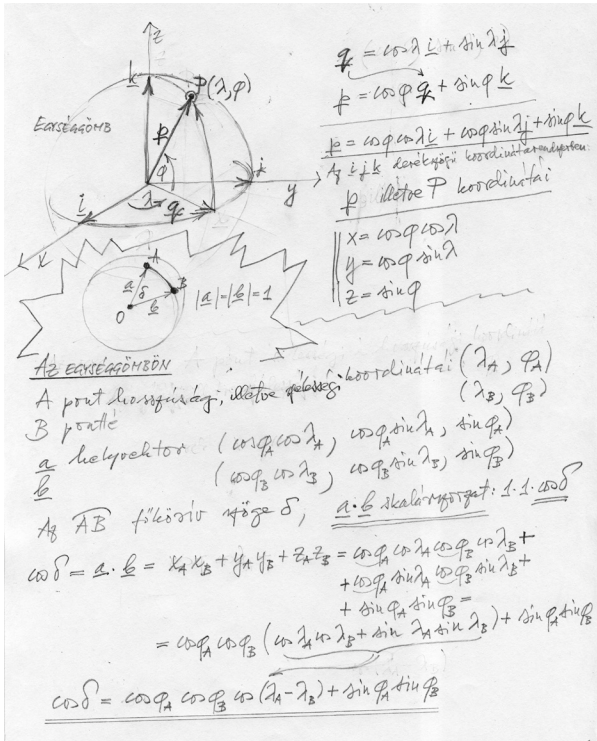 z
k
P(λ,φ)
q = cosλ i + sinλ j
p = cosφ q + sinφ k
EGYSÉGGÖMB
p
p = cosφ cosλ i + cosφ sinλ j + sinφ k
Az i j k derékszögű koordinátarendszerben:
φ
j
y
λ
q
p illetve P koordinátái
i
x = cosφ cosλ
y = cosφ sinλ
z = sinφ
x
A
a
δ
B
b
O
|a|=|b|=1
AZ EGYSÉGGÖMBÖN
A pont hosszúsági, illetve szélességi koordinátái (λA, φA)
B ponté (λB, φB)
a helyvektor (cosφA cosλA, cosφA sinλA, sinφA)
b (cosφB cosλB, cosφB sinλB, sinφB)
Az AB főkörív szöge δ, a·b skalárszorzat: 1·1·cosδ
cosδ = a·b = xA xB + yA yB + zA zB = cosφA cosλA cosφB cosλB +
+ cosφA sinλA cosφB sinλB +
+ sinφA sinφB =
= cosφA cosφB (cosλA cosλB + sin λA sin λB) + sinφA sinφB
cosδ = cosφA cosφB cos(λA-λB) + sinφA sinφB